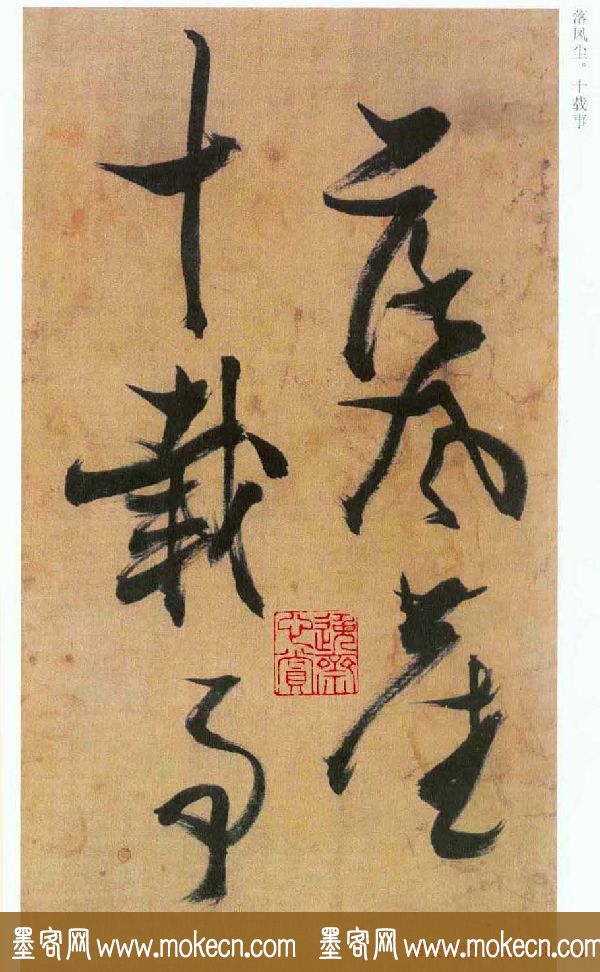 落风尘。十载事
落風塵
十載事
墨客网 www.mokecn.com 墨客网 www.mokecn.com